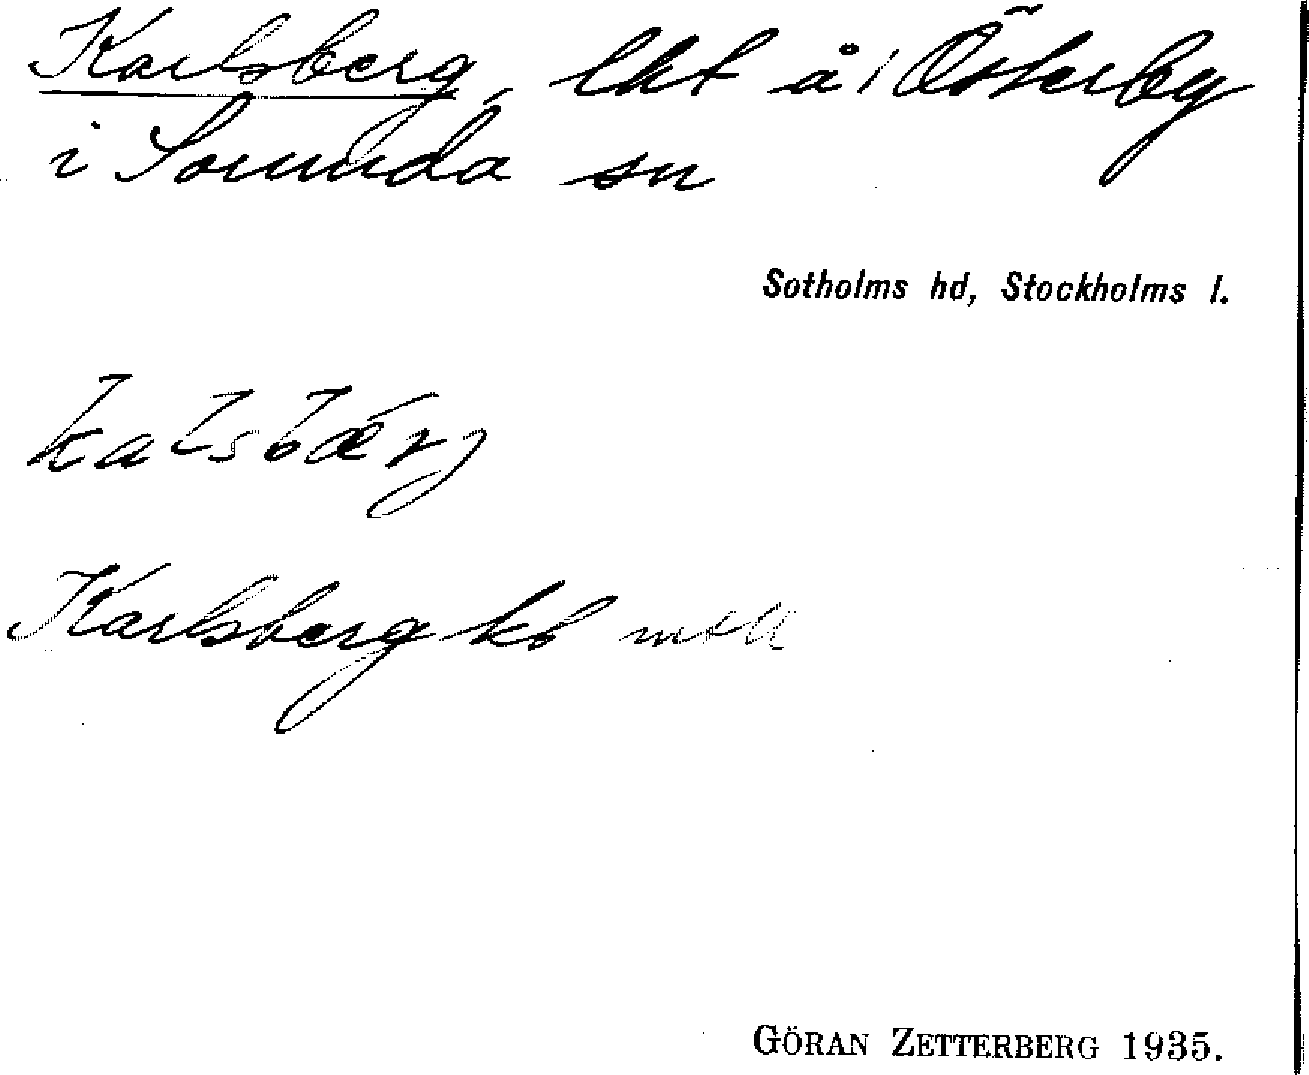 Karlsberg, lht å Österby
i Sorunda sn
Sotholms hd, Stockholms l.
kalsbærj
Karlsberg kb
GÖRAN ZETTERBERG 1935.